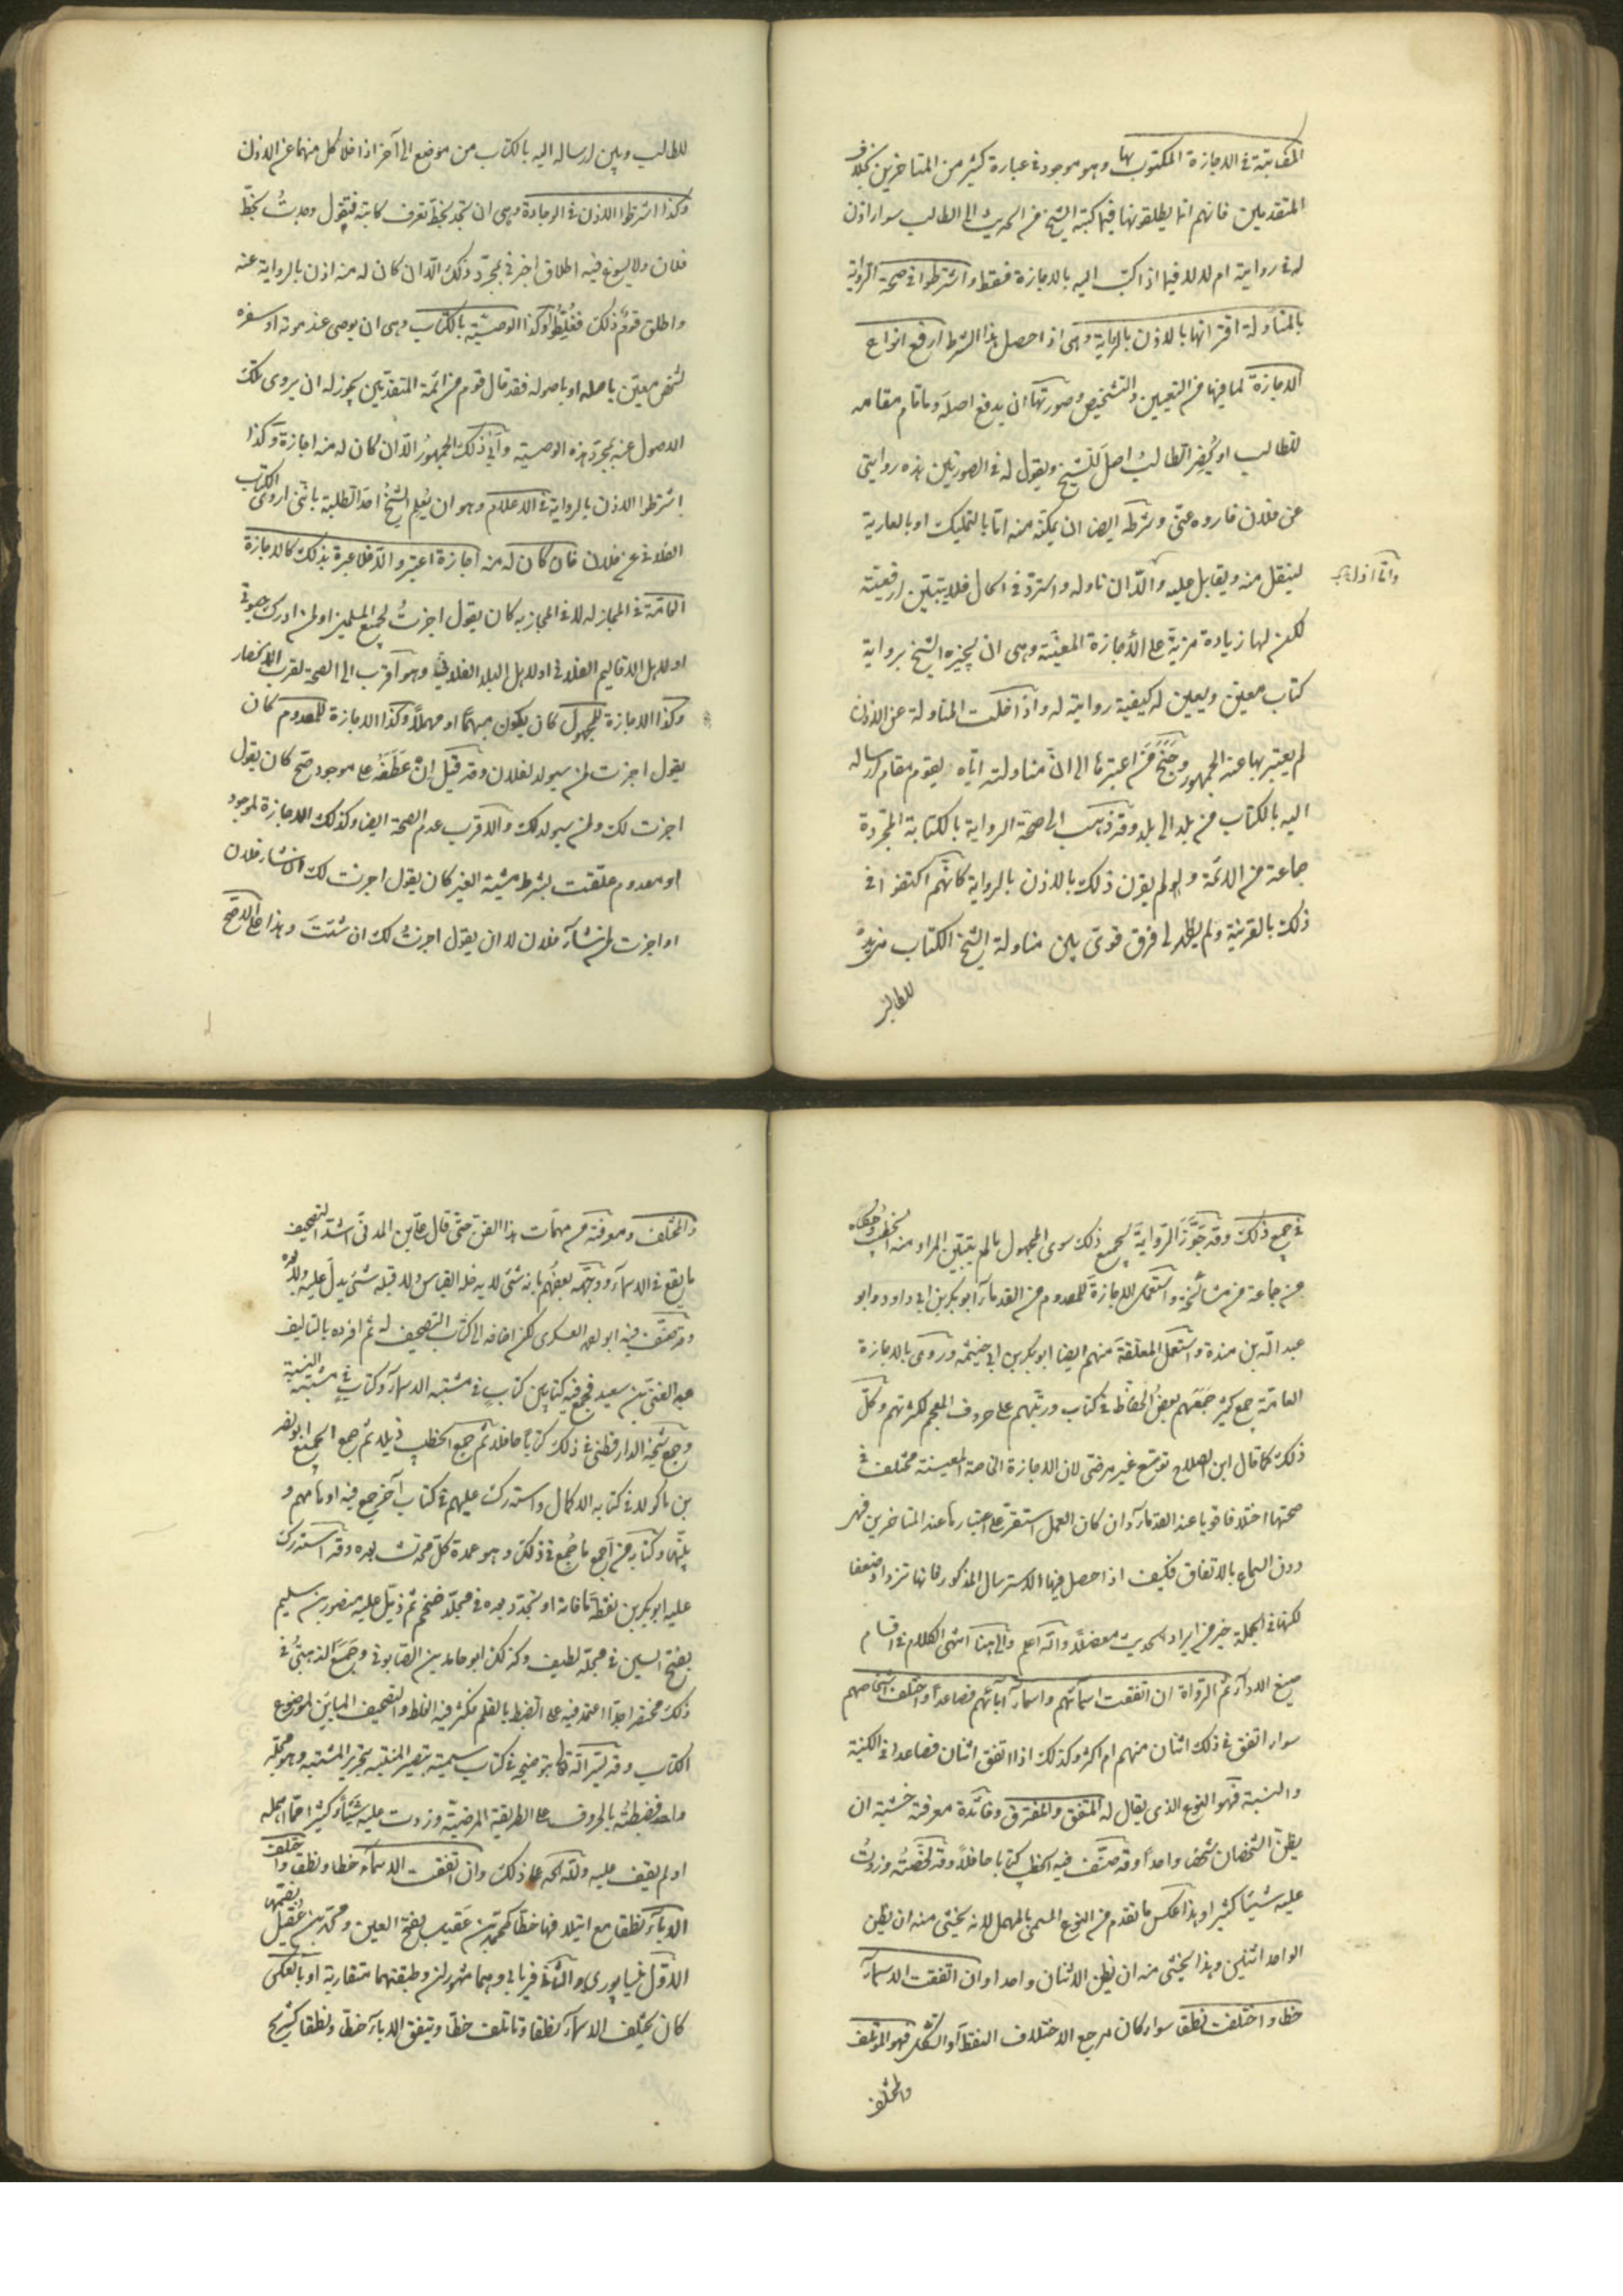 المكاتبة في الاجازة المكتوب بها وهو موجود في عبارة كثير من المتاخرين بخلاف
المتقدمين فانهم انما يطلقونها فيما كتبه الشيخ من الحديث الى الطالب سواء اذن
له في روايته ام لا لا فيما اذا كتب اليه بالاجازة فقط واشترطوا في صحة الرواية
بالمناولة اقترانها بالاذن بالرواية وهي اذا حصل هذا الشرط ارفع انواع
الاجازة لما فيها من التعيين والتشخيص وصورتها ان يدفع اصله وما قام مقامه
للطالب او يحضر الطالب اصل الشيخ ويقول له في الصورتين هذه روايتي
عن فلان فاروه عنّي وشرطه ايضا ان يمكنه منه امّا بالتمليك او بالعارية
لينقل منه ويقابل عليه والّا ان ناوله واستردّ في الحال فلا يتبيّن ارفعيّته
لكن لها زيادة مزيّة على الاجازة المعيّنة وهي ان يجيزه الشيخ برواية
كتاب معيّن ويعين له كيفية روايته له واذا خلت المناولة عن الاذن
لم يعتبر بها عند الجمهور وجنح من اعتبرها الى انّ مناولته ايّاه يقوم مقام ارساله
اليه بالكتاب من بلد الى بلد وقد ذهب الى صحة الرواية بالكتابة المجرّدة
جماعة من الائمة ولو لم يقرن ذلك بالاذن بالرواية كانّهم اكتفوا في
ذلك بالقرينة ولم يظهر لي فرق قوي بين مناولة الشيخ الكتاب من يده
للطالب
للطالب وبين ارساله اليه بالكتاب من موضع الى آخر اذا خلا كل منهما عن الاذن
وكذا اشترطوا الاذن في الوجادة وهي ان يجد بخطّ يعرف كاتبه فيقول وجدتُ بخطّ
فلان ولا يسوغ فيه اطلاق اخبرني بمجرّد ذلك الّا ان كان له منه اذن بالرواية عنه
واطلق قومٌ ذلك فغُلّطوا وكذا الوصيّة بالكتاب وهي ان يوصي عند موته او سفره
لشخص معيّن باصله او باصوله فقد قال قوم من ائمة المتقدّمين يجوز له ان يروي تلك
الاصول عنه بمجرّد هذه الوصية وأبى ذلك الجمهورُ الّا ان كان له منه اجازة وكذا
اشترطوا الاذن بالرواية في الاعلام وهو ان يُعلِم الشيخُ احد الطلبة بانّني اروى الكتاب
الفلاني عن فلان فان كان له منه اجازة اعتبر والّا فلا عبرة بذلك كالاجازة
العامّة في المجاز له لا في المجاز به كان يقول اجزتُ لجميع المسلمين او لمن ادرك حيوتي
او لاهل الاقاليم الفلاني او لاهل البلد الفلانية وهو أقرب الى الصحة لقرب الانحصار
وكذا الاجازة للمجهول كان يكون مبهمًا او مهملًا وكذا الاجازة للمعدوم كان
يقول اجزت لمن سيولد لفلان وقد قيل إنْ عَطَفَهُ على موجود صحّ كان يقول
اجزت لك ولمن سيولد لك والاقرب عدم الصحة ايضا وكذلك الاجازة لموجود
او معدوم علقت بشرط مشية الغير كان يقول اجزت لك ان شاء فلان
او اجزت لمن شاء فلان لا ان يقول اجزتُ لك ان شئتَ وهذا على الاصح
في جميع ذلك وقد جوّز الرواية بجميع ذلك سوى المجهول ما لم يتبيّن المراد منه الخطيب وحكاه
عن جماعة من مشائخه واستعمل الاجازة للمعدوم من القدماء ابو بكر بن ابي داود وابو
عبد الله بن مندة واستعمل المعلّقة منهم ايضا ابو بكر بن ابي خيثمة وروى بالاجازة
العامّة جمع كثير جمعهم بعض الحفّاظ في كتاب ورتبهم على حروف المعجم لكثرتهم وكلّ
ذلك كما قال ابن الصلاح توسّع غير مرضيّ لان الاجازة الخاصة المعينة مختلف في
صحتها اختلافا قويا عند القدماء وان كان العمل استقرّ على اعتبارها عند المتاخرين فهي
دون السماع بالاتفاق فكيف اذا حصل فيها الاسترسال المذكور فانها تزداد ضعفا
لكنها في الجملة خير من ايراد الحديث معضلًا والله اعلم والى هنا انتهى الكلام في اقسام
صيغ الاداء ثم الرواة ان اتفقت اسماؤهم واسماء آبائهم فصاعدًا واختلف اشخاصهم
سواء اتفق في ذلك اثنان منهم ام اكثر وكذلك اذا اتفق اثنان فصاعدا في الكنية
والنسبة فهو النوع الذي يقال له المتفق والمفترق وفائدة معرفته خشية ان
يظن الشخصان شخصا واحدًا وقد صنّف فيه الخطيب كتابا حافلا وقد لخّصته وزدتُ
عليه شيئا كثيرا وهذا عكس ما تقدم من النوع المسمى بالمهمل لانه يخشى منه ان يظن
الواحد اثنين وهذا يخشى منه ان يظن الاثنان واحدا وان اتفقت الاسماء
خطا واختلفت نطقا سواء كان مرجع الاختلاف النقط أو الشكل فهو المؤتلف
والمختلف
والمختلف ومعرفته من مهمّات هذا الفن حتّى قال علي بن المديني اشدّ التصحيف
ما يقع في الاسماء ووجّهه بعضُهم بانه شئ لا يدخله القياس ولا قبله شئ يدلّ عليه ولا بعده
وقد صنّف فيه ابو احمد العسكري لكن اضافه الى كتاب التصحيف له ثم افرده بالتاليف
عبد الغني بن سعيد فجمع فيه كتابين كتابٍ في مشتبه الاسماء وكتابٍ في مشتبه النسبة
وجمع شيخه الدارقطني في ذلك كتابًا حافلا ثم جمع الخطيب ذيلا ثم جمع الجميع ابو نصر
بن ماكولا في كتابه الاكمال واستدرك عليهم في كتاب آخر جمع فيه اوهامهم و
بيّنها وكتابه من اجمع ما جُمع في ذلك وهو عمدة كلّ محدّث بعده وقد استدرك
عليه ابو بكر بن نقطة ما فاته او تجدّد بعده في مجلّد ضخم ثم ذيّل عليه منصور بن سليم
بفتح السين في مجلّد لطيف وكذلك ابو حامد بن الصّابوني وجَمَعَ الذهبيُّ في
ذلك مختصرا جدّا اعتمد فيه على الضبط بالقلم فكثر فيه الغلط والتصحيف المباين لموضوع
الكتاب وقد يسّر الله تعالى بتوضيحه في كتاب سميته بتبصير المنتبه بتحرير المشتبه وهو مجلّد
واحد فضبطتُه بالحروف على الطريقة المرضيّة وزدت عليه شيئًا كثيرا ممّا اهمله
او لم يقف عليه ولله الحمد على ذلك وان اتفقت الاسماء خطا ونطقا واختلف
الآباءُ نطقا مع ايتلافها خطًّا كمحمّد بن عَقيل بفتح العين ومحمّد بن عُقيل بضمّها
الاوّل نيسابوري والثاني فريابي وهما مشهوران وطبقتهما متقاربة او بالعكس
كان يختلف الاسماء نطقا وتاتلف خطّا ويتفق الاباء خطّا ونطقا كشريح